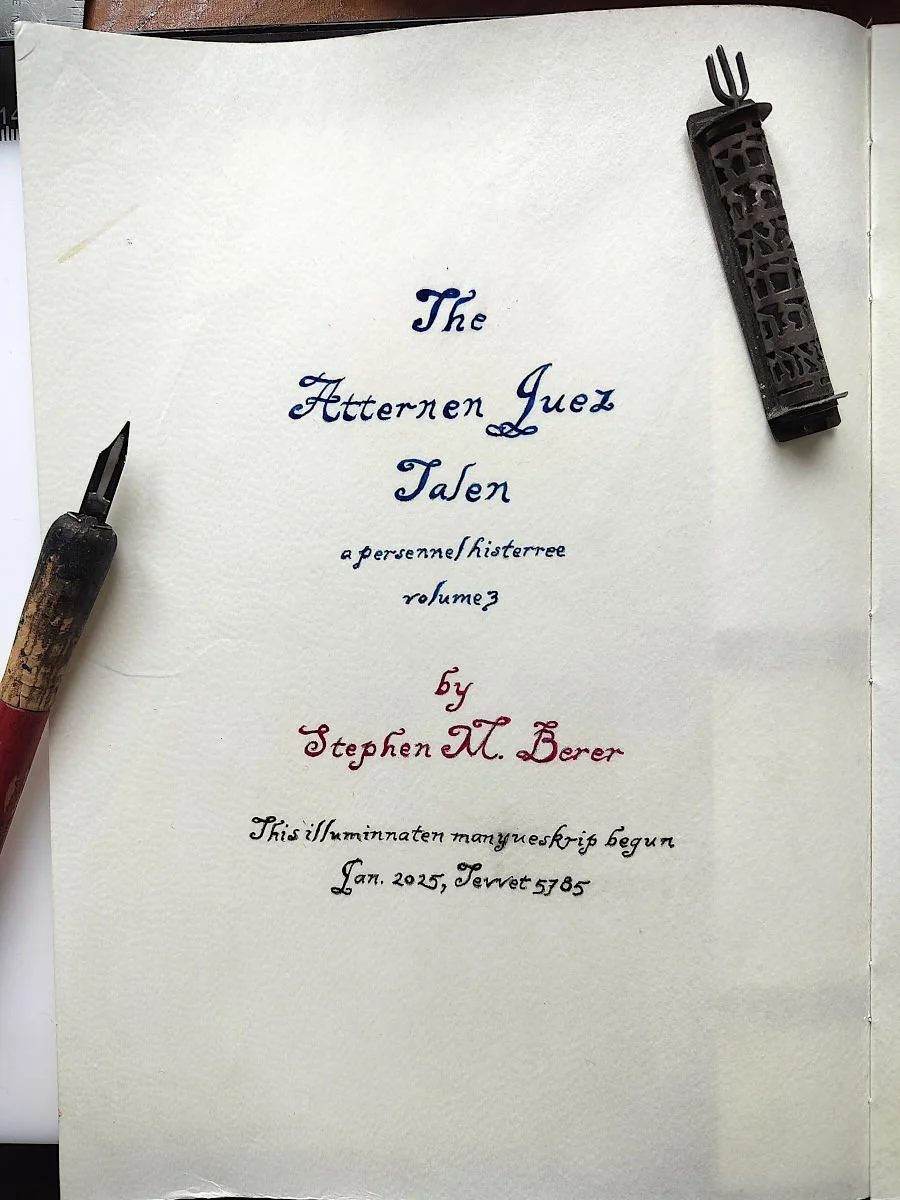 The
Atternen Juez
Talen
a persennel histerree
volume 3
by
Stephen M. Berer
This illuminnaten manyueskrip begun
Jan. 2025, Tevvet 5785
14